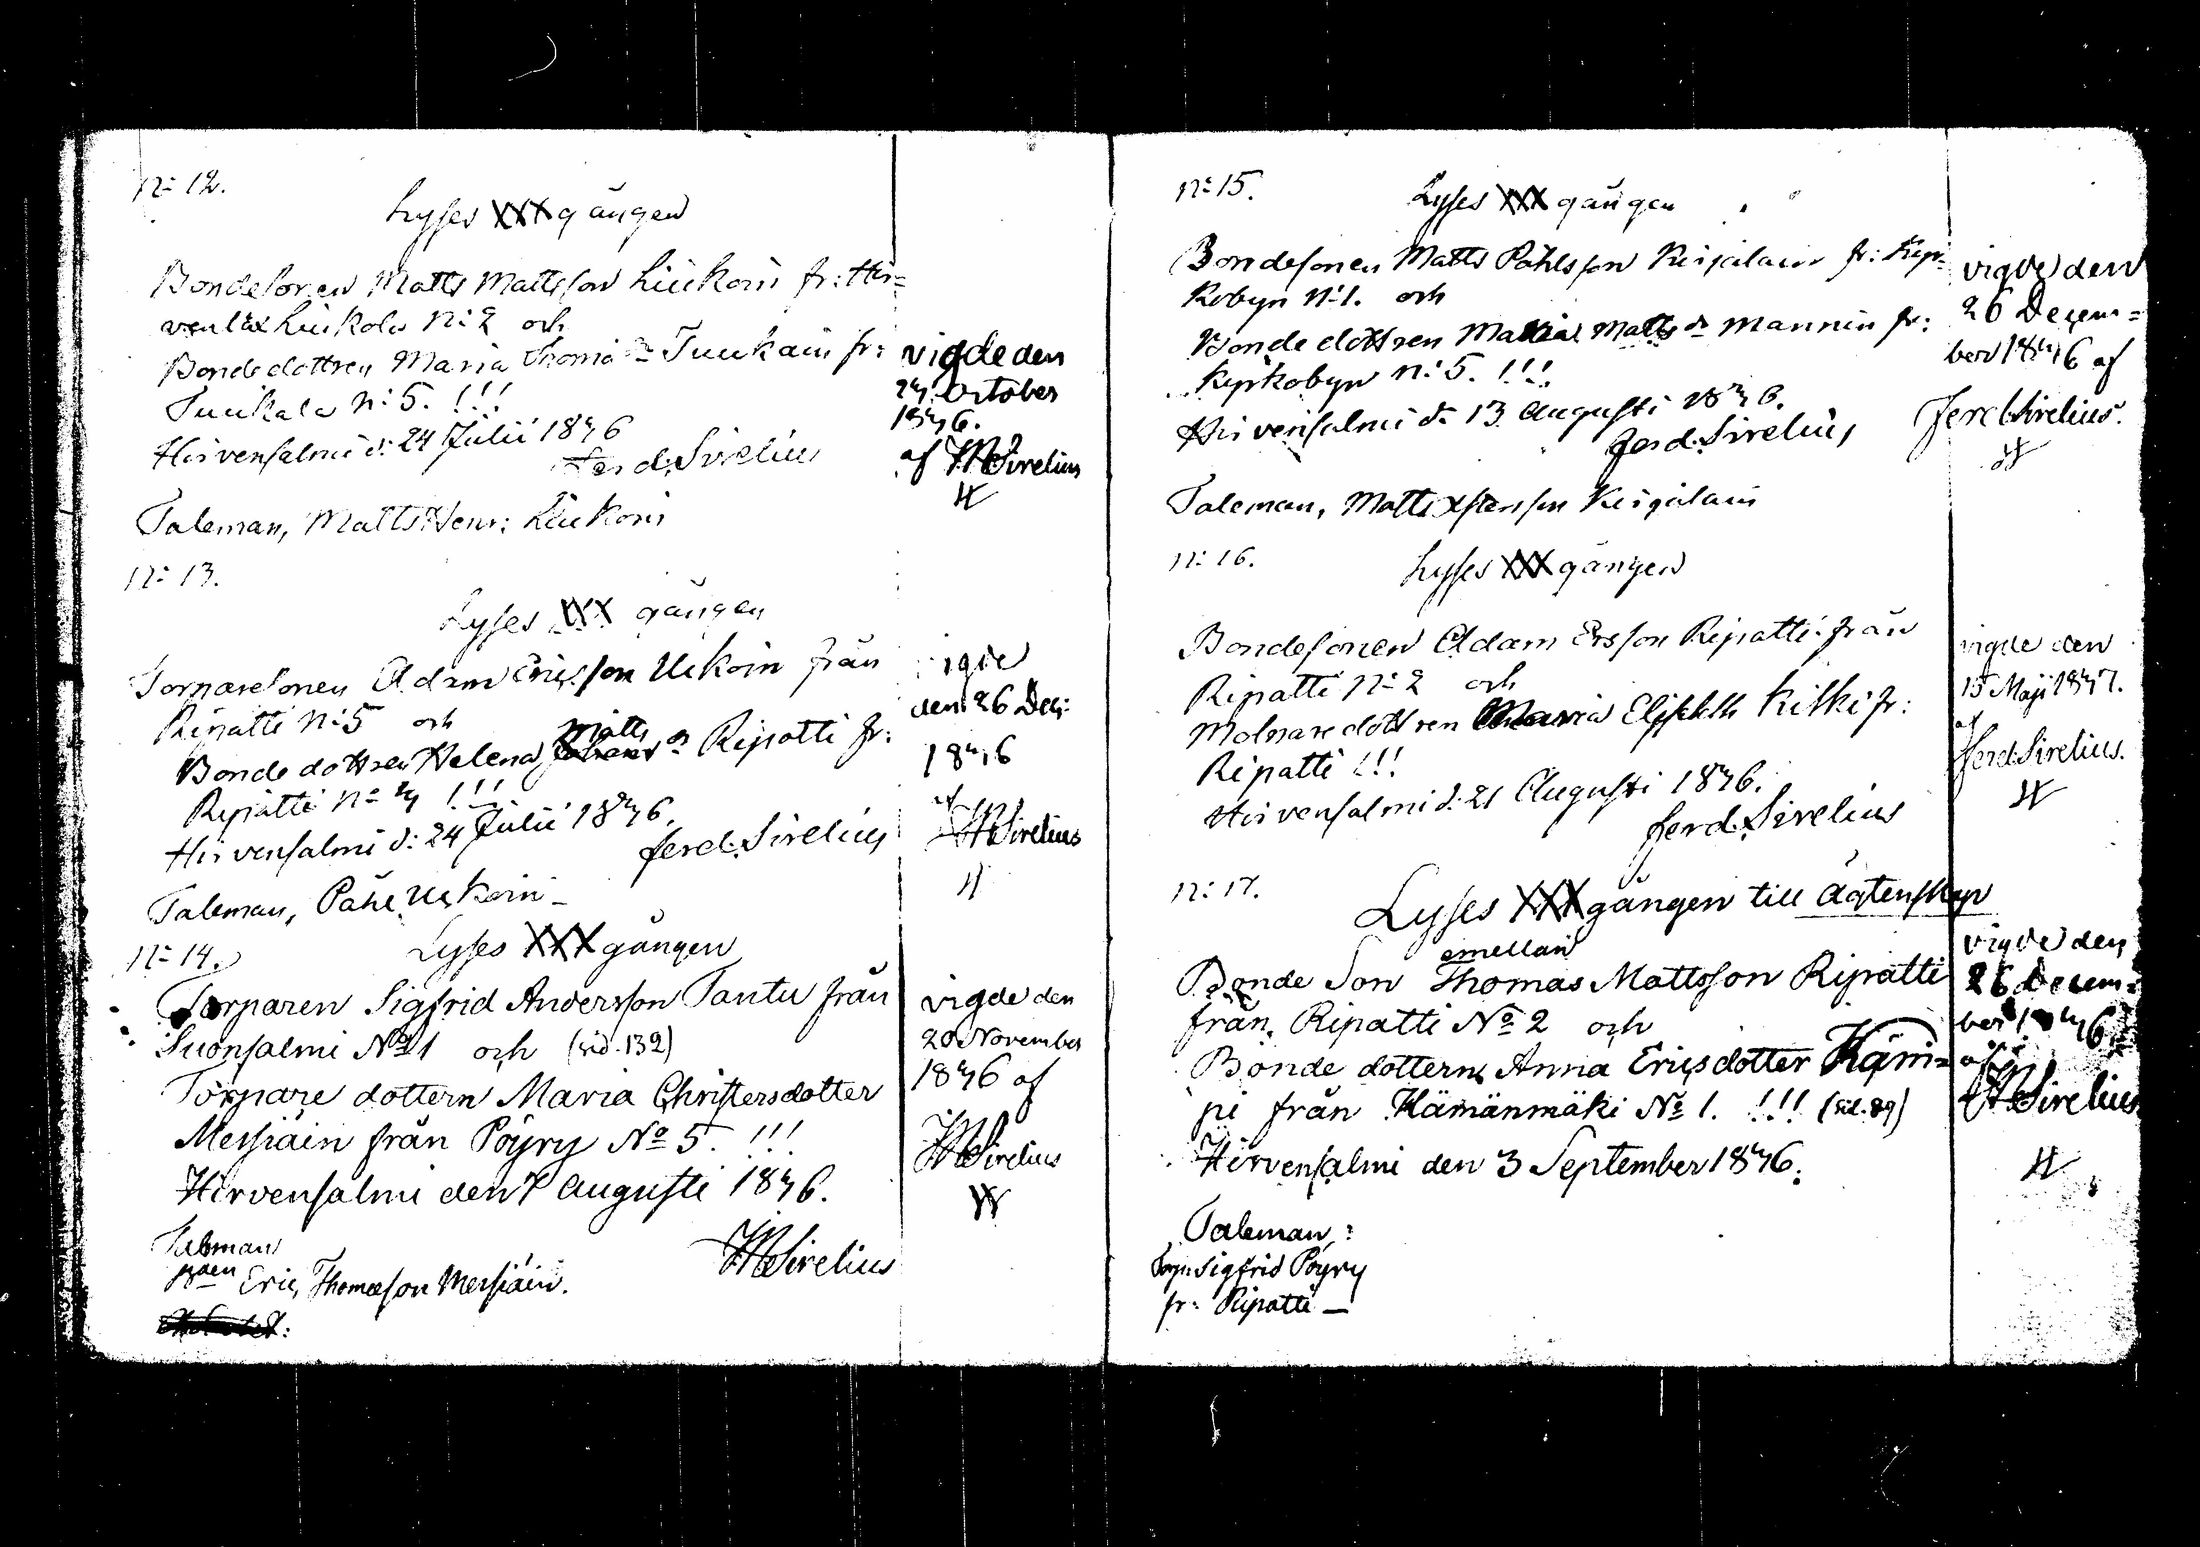 N:o 12.
Lyses XXX gången
Bondesonen Matts Mattsson Liukoin fr: Hir=
venlax Liukola N:o 2 och
Bondedottren Maria Thomæ dr Tuukain fr:
Tuukala N:o 5. !!!
Hirvensalmi d: 24 Julii 1846
Ferd: Sirelius
Taleman, Matts Henr: Liukoin
vigde den
24 October
1846.
af Sirelius
N:o 13.
Lyses XXX gången
Torparesonen Adam Ericsson Ukoin från
Ripatti N:o 5 och
Matts
Bonde dottren Helena dr Ripatti fr:
Ripatti No 4 !!!
Hirvensalmi d: 24 Julii 1846.
Ferd: Sirelius
Taleman, Påhl Ukoin
vigde
den 26 Dec:
1846
af
Sirelius
N:o 14.
Lyses XXX gången
Torparen Sigfrid Andersson Tantu från
Suonsalmi No 1 och (sid. 132)
Torpare dottern Maria Christersdotter
Messiäin från Pöyry No 5. !!!
Hirvensalmi den 7 Augusti 1846.
Sirelius
Taleman
Eric Thomasson Messiäin.
vigde den
20 November
1846 af
Sirelius
N:o 15.
Lyses XXX gången
Bondesonen Matts Påhlsson Kirjalain fr: Kyr=
kobyn N:o 1. och
Bonde dottren Maria Matts dr Mannin fr:
Kyrkobyn N:o 5. !!!
Hirvensalmi d. 13 Augusti 1846.
Ferd: Sirelius
Taleman, Matts Kirjalain
vigde den
26 Decem=
ber 1846 af
Ferd Sirelius.
N:o 16.
Lyses XXX gången
Bondesonen Adam Ersson Ripatti från
Ripatti N:o 2 och
Molnare dottren Maria Elisabeth Kilki fr:
Ripatti !!!
Hirvensalmi d: 21 Augusti 1846.
Ferd: Sirelius
vigde den
15 Maji 1847.
af
Ferd: Sirelius.
N:o 17.
Lyses XXX gången till Ägtenskap
emellan
Bonde Son Thomas Mattsson Ripatti
från Ripatti No 2 och
Bonde dottern Anna Ericsdotter Häm=
pi från Hämänmäki No 1. !!! (sid. 89)
Hirvensalmi den 3 September 1846.
Taleman:
Sigfrid Pöyry
fr: Ripatti —
vigde den
26 Decem=
ber 1846
af
Sirelius